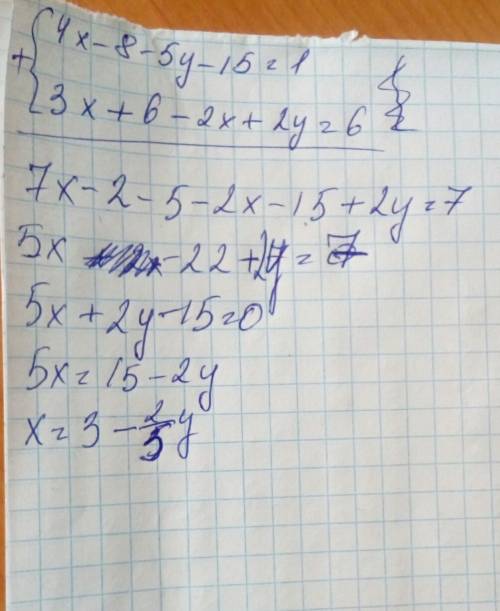 4x-8-5y-15=1
+
3x+6-2x+2y=6
7x-2-5-2x-15+2y=7
5x -22+2y=7
5x+2y-15=0
5x=15-2y
x=3-2/5y